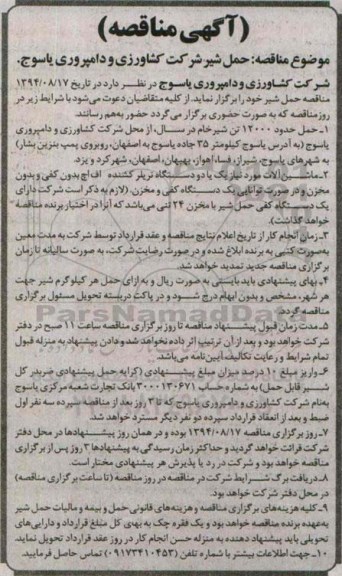 (آگهی مناقصه)
موضوع مناقصه: حمل شیر شرکت کشاورزی و دامپروری یاسوج.
شرکت کشاورزی و دامپروری یاسوج در نظر دارد در تاریخ ۱۳۹۴/۰۸/۱۷
مناقصه حمل شیر خود را برگزار نماید. از کلیه متقاضیان دعوت می‌شود با شرایط زیر در
روز مناقصه که به صورت حضوری برگزار می‌گردد حضور به‌هم رسانند.
۱ـ حمل حدود ۱۲۰۰۰ تن شیر خام در سال، از محل شرکت کشاورزی و دامپروری
یاسوج (به آدرس یاسوج کیلومتر ۳۵ جاده یاسوج به اصفهان، روبروی پمپ بنزین بشار)
به شهرهای یاسوج، شیراز، فسا، اهواز، بهبهان، اصفهان، شهرکرد و یزد.
۲ـ ماشین‌آلات مورد نیاز یک یا دو دستگاه تریلر کشنده اف‌اچ بدون کفی و بدون
مخزن و در صورت توانایی یک دستگاه کفی و مخزن. (لازم به ذکر است شرکت دارای
یک دستگاه کفی حمل شیر با مخزن ۲۴ تنی می‌باشد که آنرا در اختیار برنده مناقصه
خواهد گذاشت).
۳ـ زمان انجام کار از تاریخ اعلام نتایج مناقصه و عقد قرارداد توسط شرکت به مدت معین
به‌صورت کتبی به برنده ابلاغ شده و در صورت رضایت شرکت، به صورت سالیانه تا زمان
برگزاری مناقصه جدید تمدید خواهد شد.
۴ـ بهای پیشنهادی باید بایستی به صورت ریال و به ازای حمل هر کیلوگرم شیر جهت
هر شهر، مشخص و بدون ابهام درج شود و در پاکت دربسته تحویل مسئول برگزاری
مناقصه گردد.
۵ـ مدت زمان قبول پیشنهاد مناقصه تا روز برگزاری مناقصه ساعت ۱۱ صبح در دفتر
شرکت خواهد بود و بعد از آن ترتیب اثر داده نخواهد شد و دادن پیشنهاد به منزله قبول
تمام شرایط و رعایت تکالیف آیین‌نامه می‌باشد.
۶ـ واریز مبلغ ۱۰ درصد میزان مبلغ پیشنهادی (کرایه حمل پیشنهادی ضربدر کل
شیر قابل حمل) به شماره حساب ۳۰۰۰۱۳۰۶۷۱ بانک تجارت شعبه مرکزی یاسوج
به‌نام شرکت کشاورزی و دامپروری یاسوج که تا ۳ روز بعد از مناقصه سپرده سه نفر اول
ضبط و بعد از انعقاد قرارداد سپرده دو نفر دیگر مسترد خواهد شد.
۷ـ روز برگزاری مناقصه ۱۳۹۴/۰۸/۱۷ بوده و در همان روز پیشنهادها در محل دفتر
شرکت قرائت خواهد گردید و حداکثر زمان رسیدگی به پیشنهادها ۳ روز پس از برگزاری
مناقصه خواهد بود و شرکت در رد یا پذیرش هر پیشنهادی مختار است.
۸ـ دریافت برگ شرایط شرکت در مناقصه در روز مناقصه (تا ساعت برگزاری مناقصه)
در محل دفتر شرکت خواهد بود.
۹ـ کلیه هزینه‌های برگزاری مناقصه و هزینه‌های قانونی حمل و بیمه و مالیات حمل شیر
به‌عهده برنده مناقصه خواهد بود و یک فقره چک به بهای کل مبلغ قرارداد و دارایی‌های
تحویلی باید پیشنهاد دهنده به منزله حسن انجام کار در روز عقد قرارداد تحویل نماید.
۱۰ـ جهت اطلاعات بیشتر با شماره تلفن (۰۹۱۷۳۴۱۰۴۵۳) تماس حاصل فرمایید.
ParsNamadData